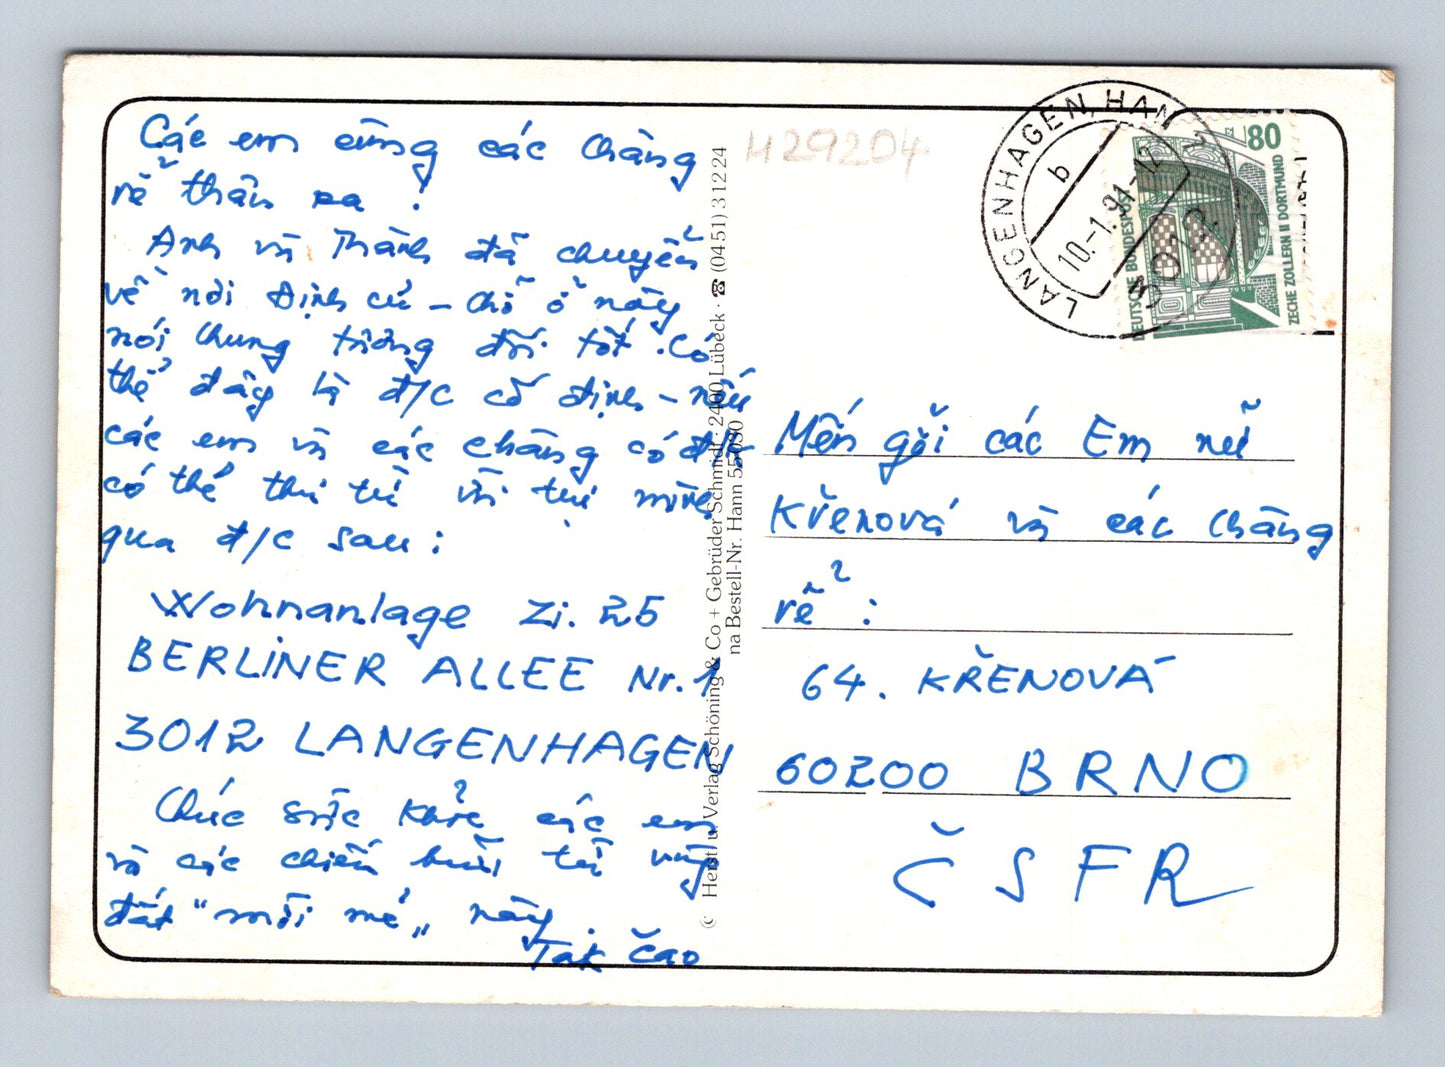 Các em cùng các chàng
rể thân xa !
Anh và Thành đã chuyển
về nơi định cư – chỗ ở này
nói chung tương đối tốt. Có
thể đây là đ/c cố định – nếu
các em và các chàng có đ/k
có thể thư từ với tụi mình
qua đ/c sau :
Wohnanlage Zi. 25
BERLINER ALLEE Nr. 1
3012 LANGENHAGEN
Chúc sức khỏe các em
và các chiến hữu từ vùng
đất "mới mẻ" này.
Tak čao
© Herst. u. Verlag Schöning & Co + Gebrüder Schmidt · 2400 Lübeck · ☎ (0451) 31224
na Bestell-Nr. Hann 55080
H29204
LANGENHAGEN, HAN
b
10.-1.91-12
3012
80
DEUTSCHE BUNDESPOST
ZECHE ZOLLERN II DORTMUND
Mến gởi các Em nữ
Křenová và các chàng
rể :
64. KŘENOVÁ
60200 BRNO
ČSFR